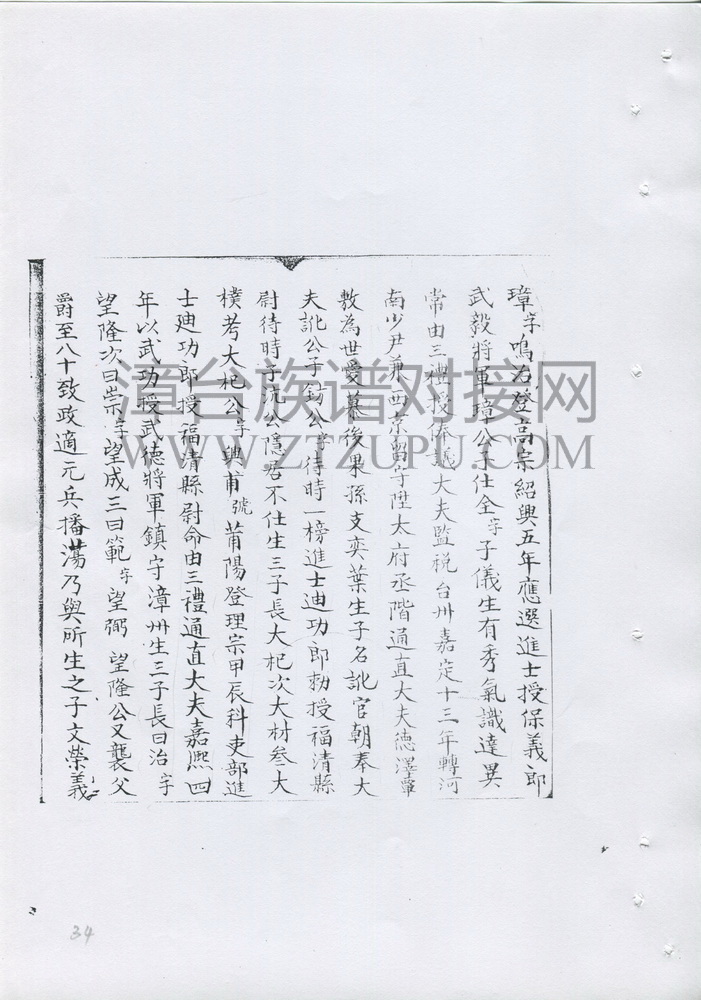 璋字鳴石登高宗紹興五年應選進士授保義郎
武毅將軍璋公子仕全字子儀生有秀氣識達異
常由三禮授保議大夫監税台州嘉定十三年轉河
南少尹兼西京留守陞太府丞階通直大夫德澤
教為世愛慕後果孫支奕葉生子名訿官朝奉大
夫訿公子鈁公字待時一榜進士迪功郎勅授福清縣
尉待時子沆公隱居不仕生三子長大杞次大材叁大
樸考大杞公字興甫號莆陽登理宗甲辰科吏部進
士廸功郎授福清縣尉命由三禮通直大夫嘉熙四
年以武功授武德將軍鎮守漳州生三子長曰治字
望隆次曰崇字望成三曰範字望弼 望隆公又襲父
爵至八十致政適元兵播蕩乃與所生之子文榮義
34
漳台族谱对接网
WWW.ZTZUPU.COM